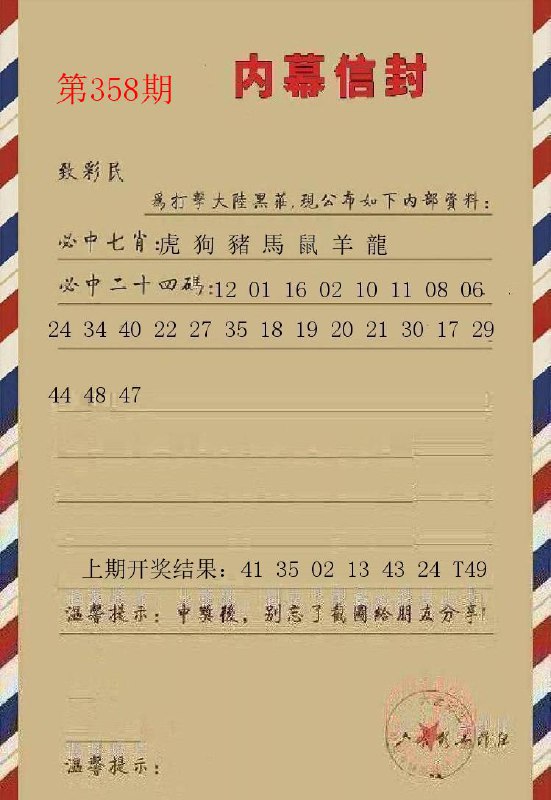 内幕信封
第358期
致彩民
爲打擊大陸黑莊,現公布如下內部資料:
必中七肖:虎 狗 豬 馬 鼠 羊 龍
必中二十四碼:12 01 16 02 10 11 08 06
24 34 40 22 27 35 18 19 20 21 30 17 29
44 48 47
上期开奖结果: 41 35 02 13 43 24 T49
温馨提示: 中獎後,别忘了截圖給朋友分享!
温馨提示: